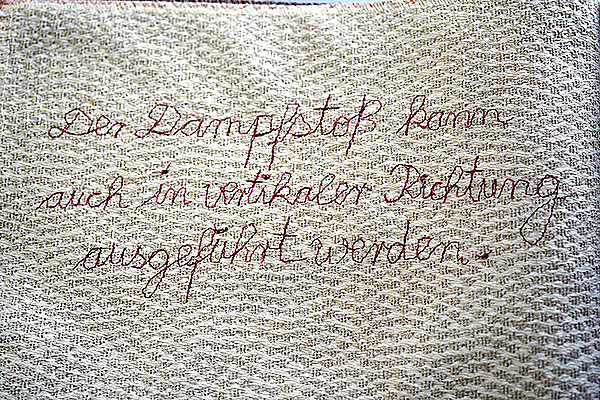 Der Dampfstoß kann
auch in vertikaler Richtung
ausgeführt werden.